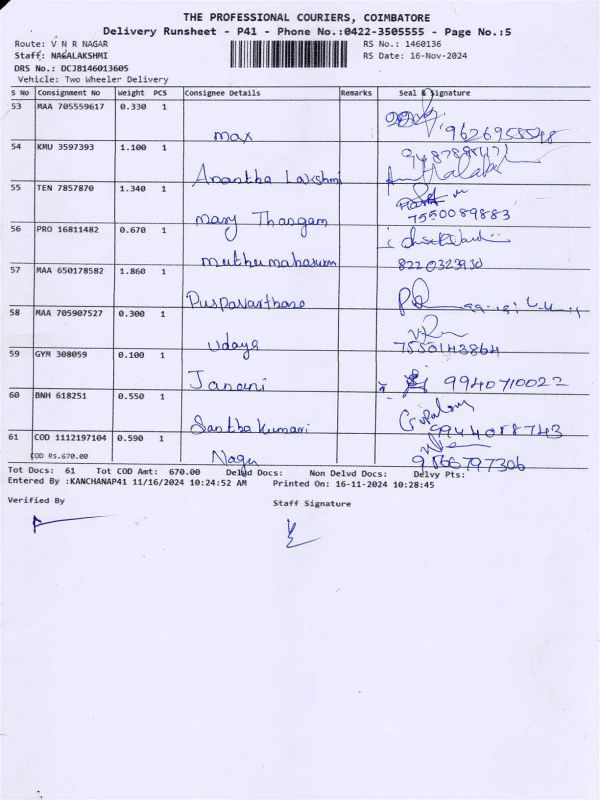 THE PROFESSIONAL COURIERS, COIMBATORE
Delivery Runsheet - P41 - Phone No.:0422-3505555 - Page No.:5
Route: V N R NAGAR
RS No.: 1460136
Staff: NAGALAKSHMI
RS Date: 16-Nov-2024
DRS No.: DCJB146013605
Vehicle: Two Wheeler Delivery
S No Consignment No Weight PCS Consignee Details Remarks Seal & Signature
53 MAA 705559617 0.330 1
max 9626958598
54 KMU 3597393 1.100 1
Anantha Lakshmi
55 TEN 7857870 1.340 1
mary Thangam 7550089883
56 PRO 16811482 0.670 1
muthumaharum 8220323930
57 MAA 650178582 1.860 1
58 MAA 705907527 0.300 1
Udaya 7550143864
59 GYM 308059 0.100 1
Janani 9940710022
60 BNH 618251 0.550 1
Santhakumari 9944088743
61 COD 1112197104 0.590 1
COD Rs.670.00 Nagu 9866797306
Tot Docs: 61 Tot COD Amt: 670.00 Delvd Docs: Non Delvd Docs: Delvy Pts:
Entered By :KANCHANAP41 11/16/2024 10:24:52 AM Printed On: 16-11-2024 10:28:45
Verified By Staff Signature